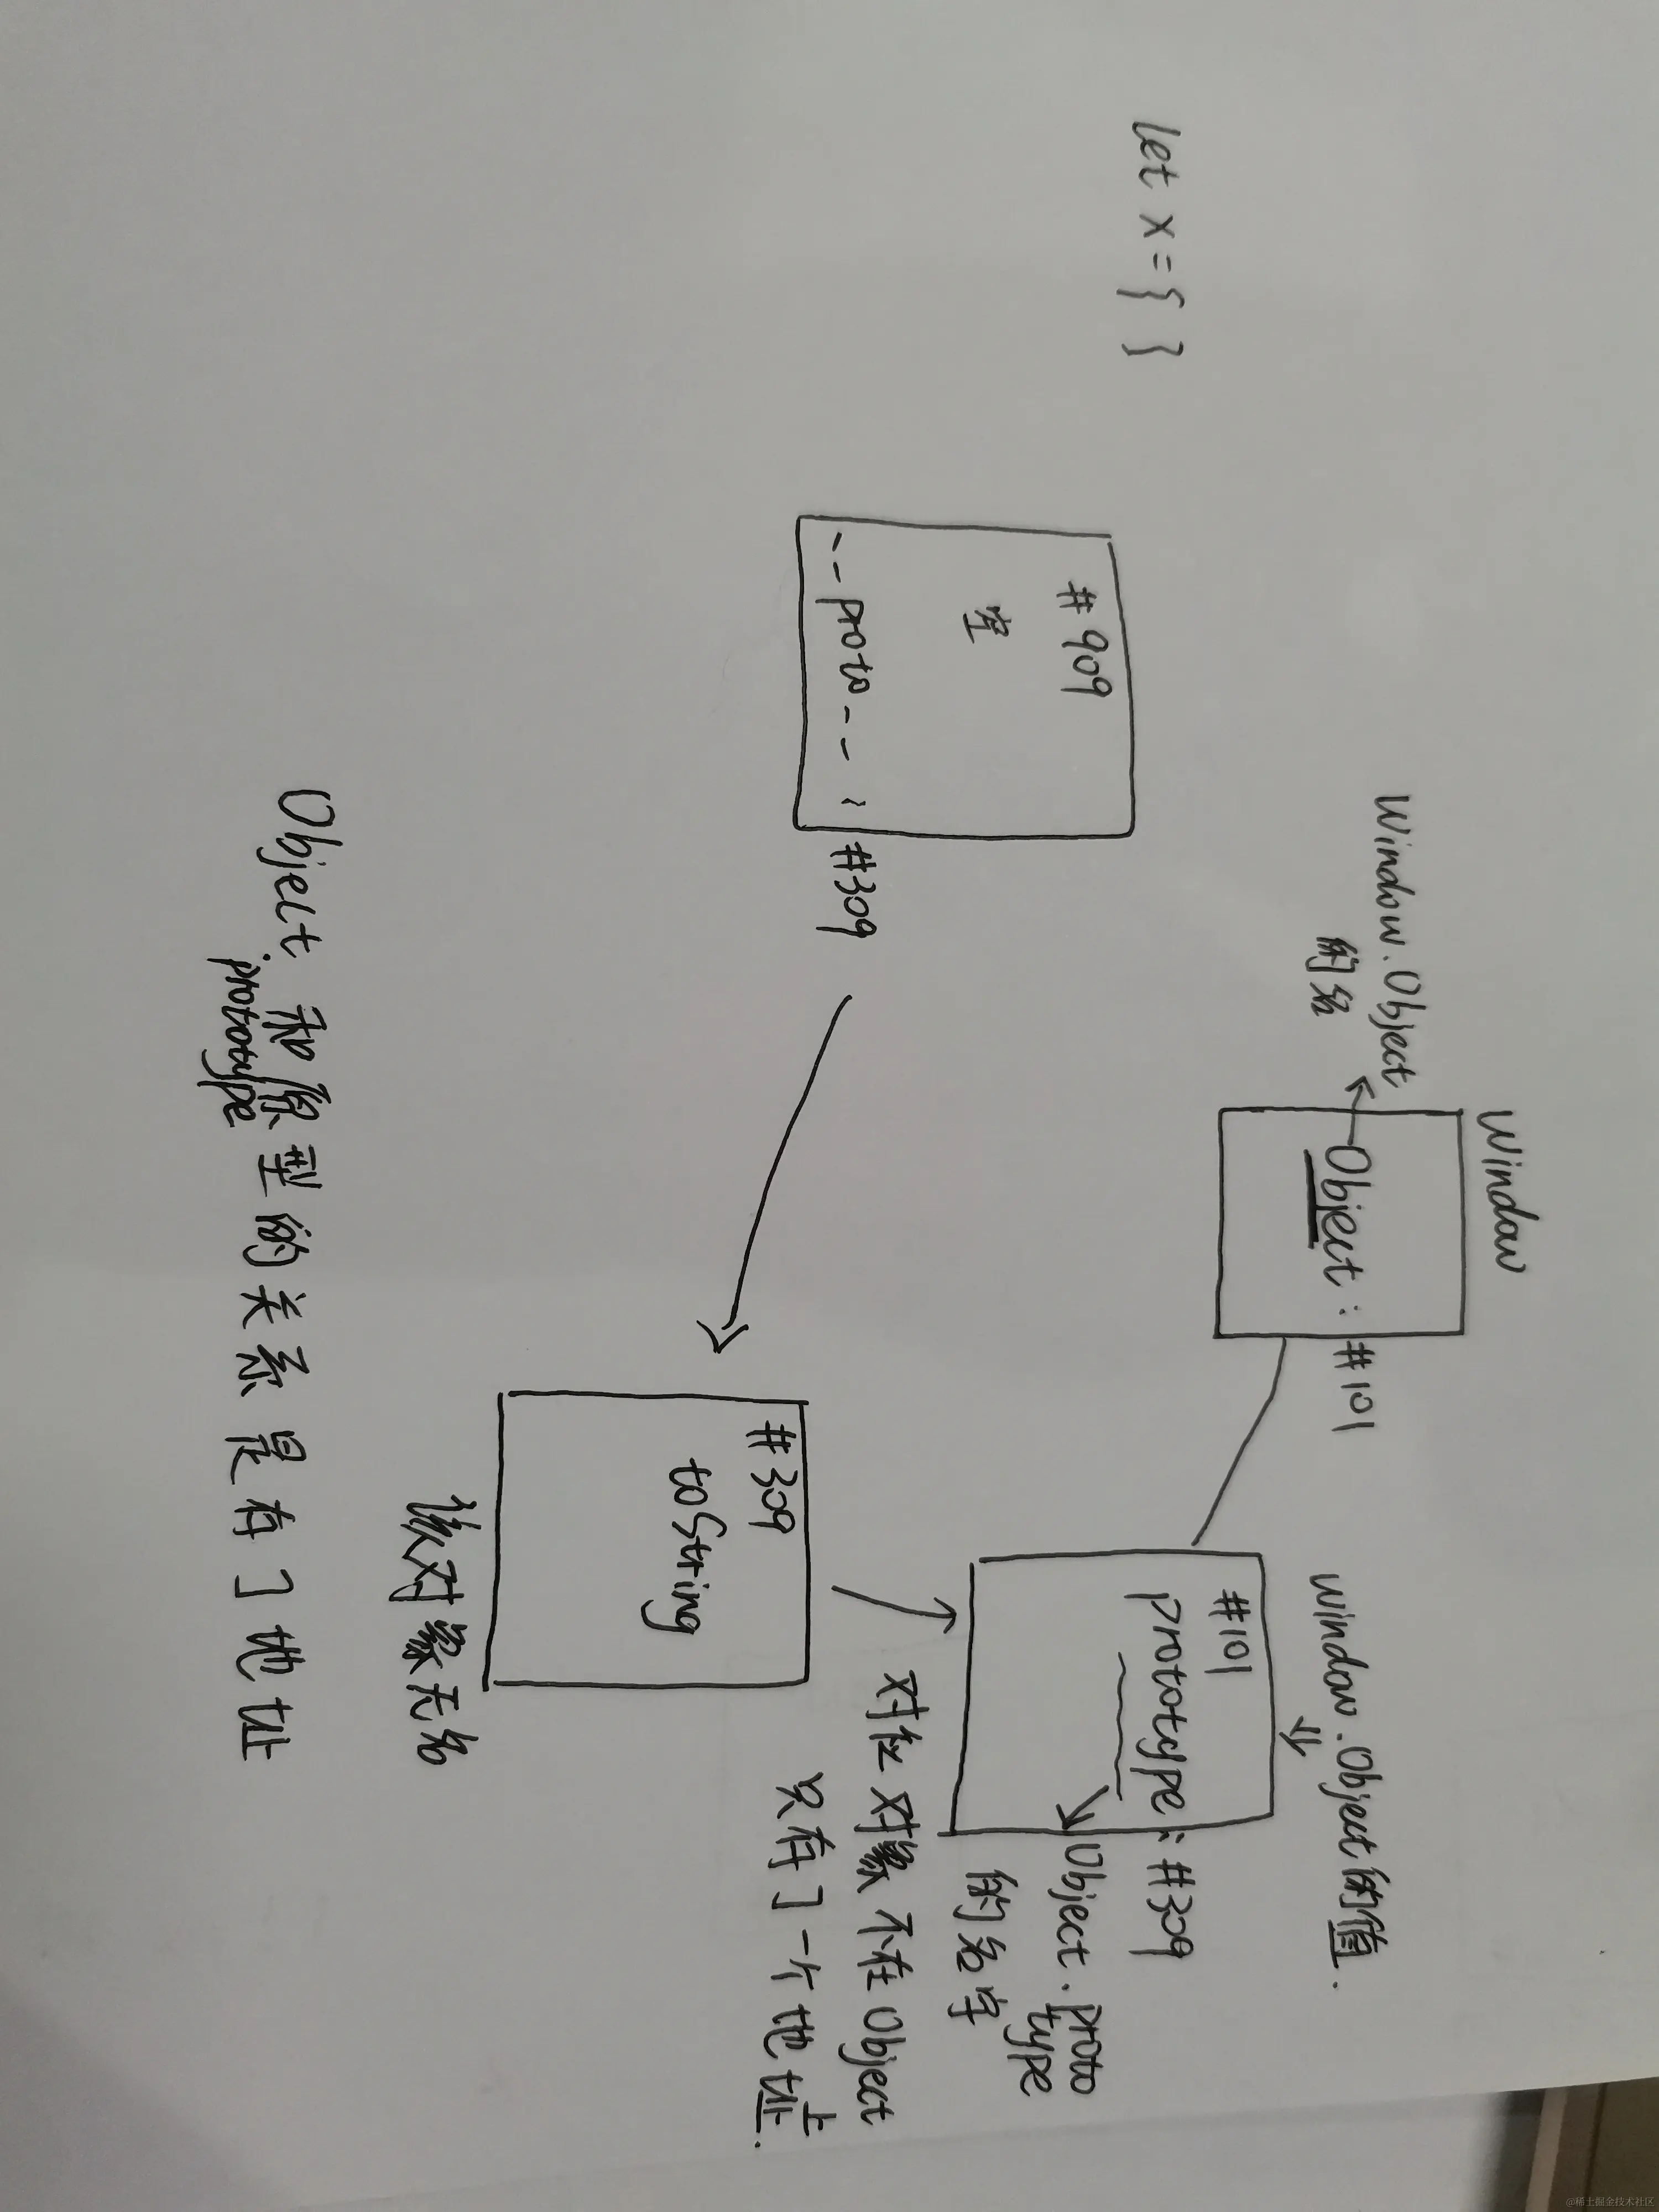 let x = { }
window
window.Object
的名
Object : #101
window.Object的值.
#101
prototype : #309
Object.proto
type
的名字
#909
空
--proto-- : #309
对应对象不在Object上
只有了一个地址.
#309
toString
该对象无名
Object 和原型的关系是存了地址
.prototype
@稀土掘金技术社区